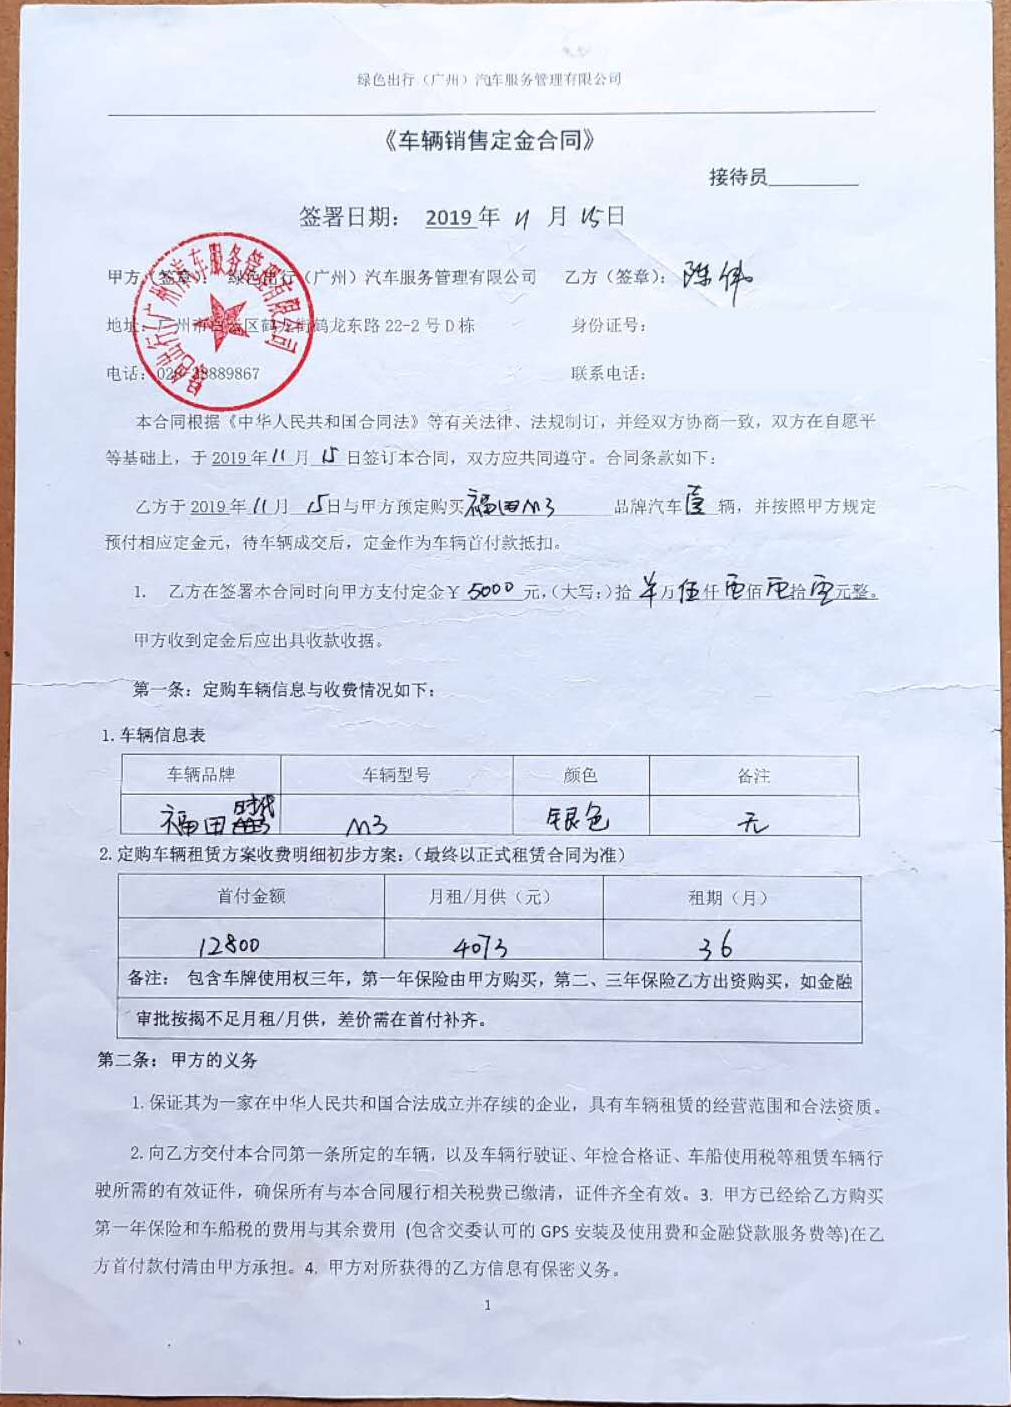 绿色出行（广州）汽车服务管理有限公司
《车辆销售定金合同》
接待员
签署日期： 2019年 11 月 15日
甲方（签章）： 绿色出行（广州）汽车服务管理有限公司 乙方（签章）：陈伟
地址：广州市白云区鹤龙街鹤龙东路 22-2 号 D 栋 身份证号：
电话：020-28889867 联系电话：
本合同根据《中华人民共和国合同法》等有关法律、法规制订，并经双方协商一致，双方在自愿平
等基础上，于 2019 年 11 月 15 日签订本合同，双方应共同遵守。合同条款如下：
乙方于 2019 年 11 月 15日与甲方预定购买福田M3 品牌汽车壹 辆，并按照甲方规定
预付相应定金元，待车辆成交后，定金作为车辆首付款抵扣。
1. 乙方在签署本合同时向甲方支付定金￥ 5000 元，（大写：）拾 万伍仟零佰零拾零元整。
甲方收到定金后应出具收款收据。
第一条：定购车辆信息与收费情况如下：
1. 车辆信息表
车辆品牌 车辆型号 颜色 备注
福田时代 M3 银色 无
2. 定购车辆租赁方案收费明细初步方案：（最终以正式租赁合同为准）
首付金额 月租/月供（元） 租期（月）
12800 4073 36
备注： 包含车牌使用权三年，第一年保险由甲方购买，第二、三年保险乙方出资购买，如金融
审批按揭不足月租/月供，差价需在首付补齐。
第二条：甲方的义务
1. 保证其为一家在中华人民共和国合法成立并存续的企业，具有车辆租赁的经营范围和合法资质。
2. 向乙方交付本合同第一条所定的车辆，以及车辆行驶证、年检合格证、车船使用税等租赁车辆行
驶所需的有效证件，确保所有与本合同履行相关税费已缴清，证件齐全有效。3. 甲方已经给乙方购买
第一年保险和车船税的费用与其余费用（包含交委认可的 GPS 安装及使用费和金融贷款服务费等)在乙
方首付款付清由甲方承担。4. 甲方对所获得的乙方信息有保密义务。
1